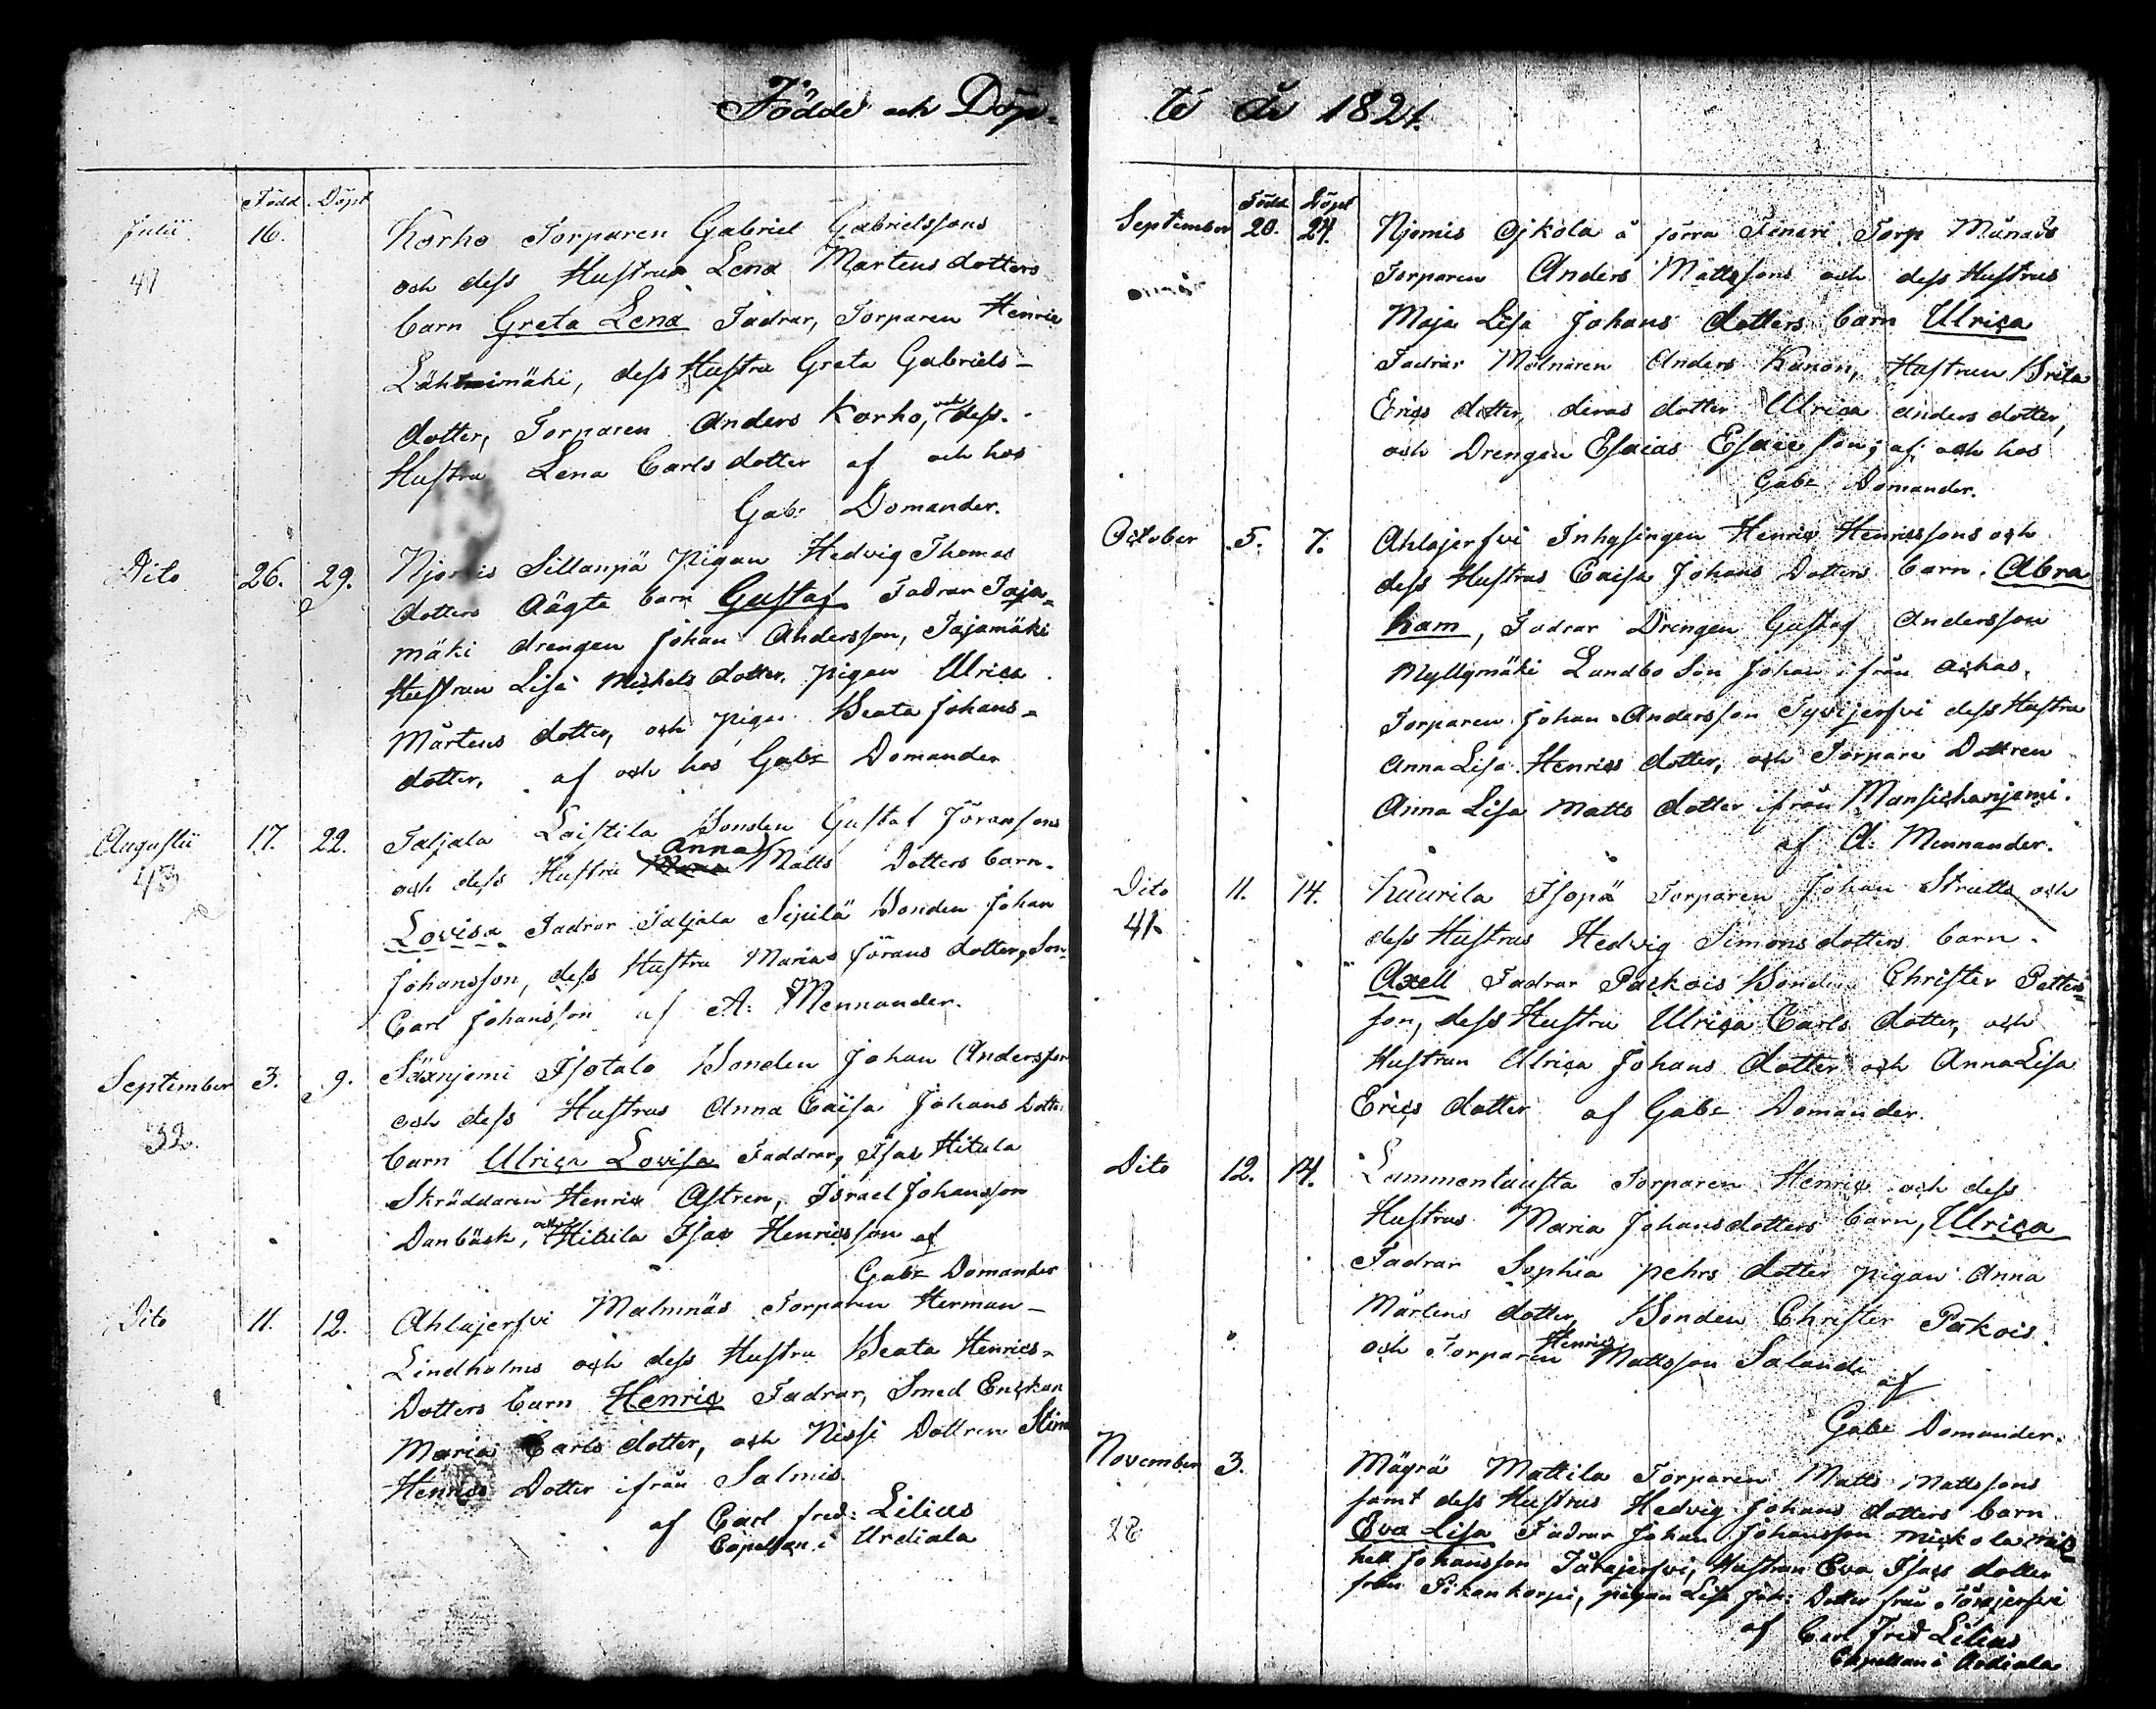 Födde och Döp-
Född Döpt
Julii 16. Korho Torparen Gabriel Gabrielssons
41 och dess Hustrus Lena Mårtens dotters
barn Greta Lena Fadrar, Torparen Henric
dess Hustru Greta Gabriels-
dotter, Torparen Anders Korho, och dess
Hustru Lena Carls dotter af och hos
Gab: Domander.
Dito 26. 29. Sillanpä Pigan Hedvig Thomas
dotters oägta barn Gustaf Fadrar Taja-
mäki drengen Johan Andersson, Tajamäki
Hustrun Lisa Michels dotter, pigan Ulrica
Mårtens dotter, och pigan Beata Johans-
dotter, af och hos Gabr Domander
Augustii 17. 22. Taljala Laistila Bonden Gustaf Jöransons
43 och dess Hustru Anna Matts Dotters barn
Lovisa Fadrar Taljala Sipilä Bonden Johan
Johansson, dess Hustru Maria Jörans dotter, Son
Carl Johansson af A: Mennander.
September 3. 9. Isotalo Bonden Johan Andersson
och dess Hustrus Anna Caisa Johans Dott:
32. barn Ulrica Lovisa Faddrar, Isac Hitula
Skräddaren Henric Astren, Israel Johansson
Danbäck, och Isac Henricsson af
Gabr Domander
Dito 11. 12. Ahlajerfvi Malmnäs Torparen Herman
Lindholms och dess Hustru Beata Henrics-
Dotters barn Henric Fadrar, Smed Enckan
Maria Carls dotter, och Nissi Dottren Stina
Henrics Dotter ifrån Salmis
af Carl Fred: Lilius
Capellan i Urdiala
te År 1821.
Född Döpt
September 20. 24. Torp
Torparen Anders Mattssons och dess Hustrus
Maja Lisa Johans dotters barn Ulrica
Fadrar Mölnaren Anders Kanon, Hustrun Brita
Erics dotter, deras dotter Ulrica Anders dotter,
och Drengen Esaias Esaiesson, af och hos
Gabr Domander.
October 5. 7. Ahlajerfvi Inhysingen Henric Henricssons och
dess Hustrus Caisa Johans Dotters barn Abra
ham, Fadrar Drengen Gustaf Andersson
Myllymäki Landbo Son Johan ifrån
Torparen Johan Andersson Tyvijerfvi dess Hustru
Anna Lisa Henrics dotter, och Torpare Dottren
Anna Lisa Matts dotter ifrån
af A. Mennander.
Dito 11. 14. Kuurila Isopä Torparen Johan och
41. dess Hustrus Hedvig Simons dotters barn
Axell Fadrar Packois Bonden Christer Petters-
son, dess Hustru Ulrica Carls dotter, och
Hustrun Ulrica Johans dotter och Anna Lisa
Erics dotter af Gabr Domander.
Dito 12. 14. Torparen Henric och dess
Hustrus Maria Johansdotters barn, Ulrica
Fadrar Sophia pehrs dotter pigan Anna
Mårtens dotter, Bonden Christer Pakois
och Torparen Henric Mattsson
af
Gabr Domander.
November 3. Mägrä Mattila Torparen Matts Mattssons
samt dess Hustrus Hedvig Johans dotters barn
28 Eva Lisa Fadrar Johan Johansson
Johansson Hustrun Eva Isacs dotter
från pigan Lisa Joh: Dotter från
af Carl Fred Lilius
Capellan i Urdiala